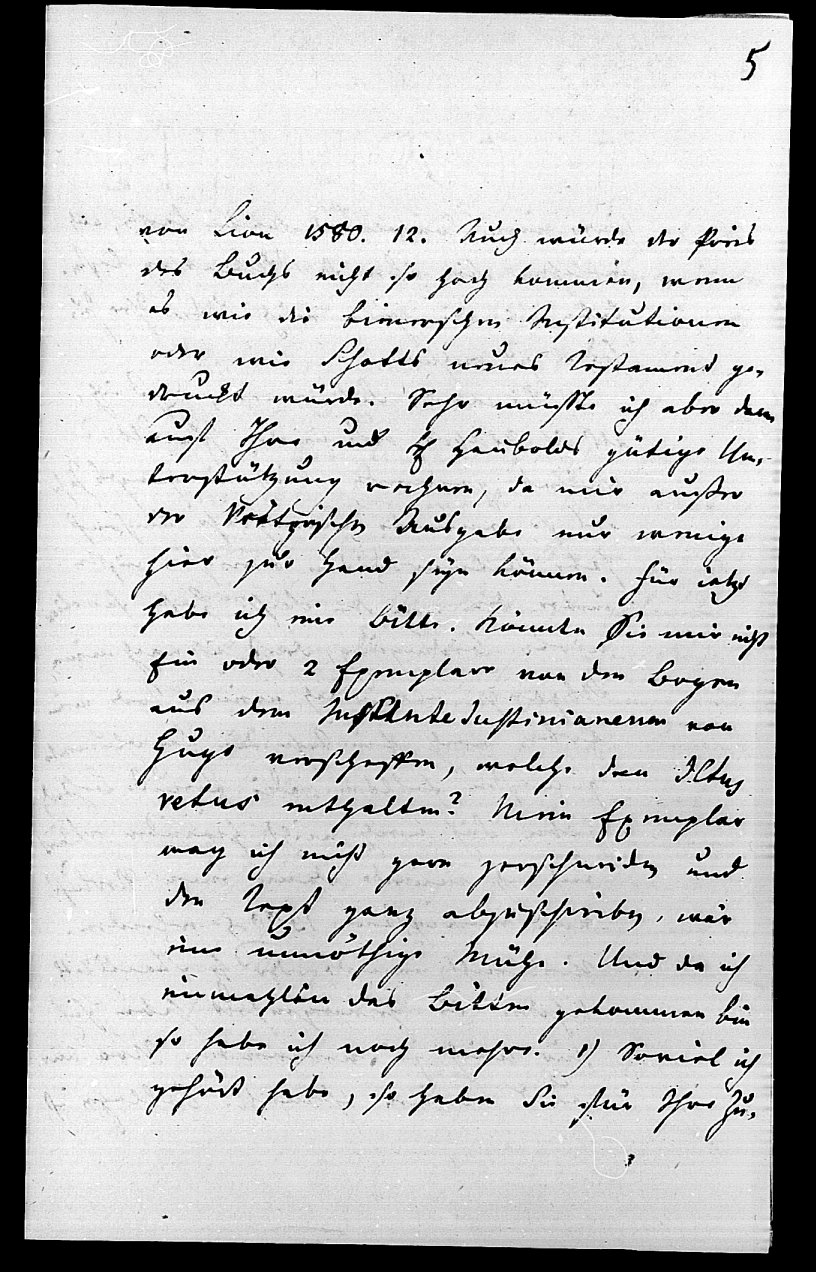 5
von Lion 1580. 12. Auch würde der Preis
des Buchs nicht so hoch kommen, wenn
es wie die Bienerschen Institutionen
oder wie Schotts neues Testament ge-
druckt würde. Sehr müsste ich aber dann
auf Ihre und H Haubolds gütige Un-
terstützung rechnen, da mir außer
der Ausgabe nur wenige
hier zur Hand seyn können. Für jetzt
habe ich eine Bitte. Könnten Sie mir nicht
Ein oder 2 Exemplare von den Bogen
aus dem Justinianeum von
Hugo verschaffen, welche den
vetus enthalten? Mein Exemplar
mag ich nicht gern zerschneiden und
den Text ganz abzuschreiben, wär
eine unnöthige Mühe. Und da ich
einmahl ins Bitten gekommen bin
so habe ich noch mehre. 1) Soviel ich
gehört habe, so haben Sie für Ihre Zu-